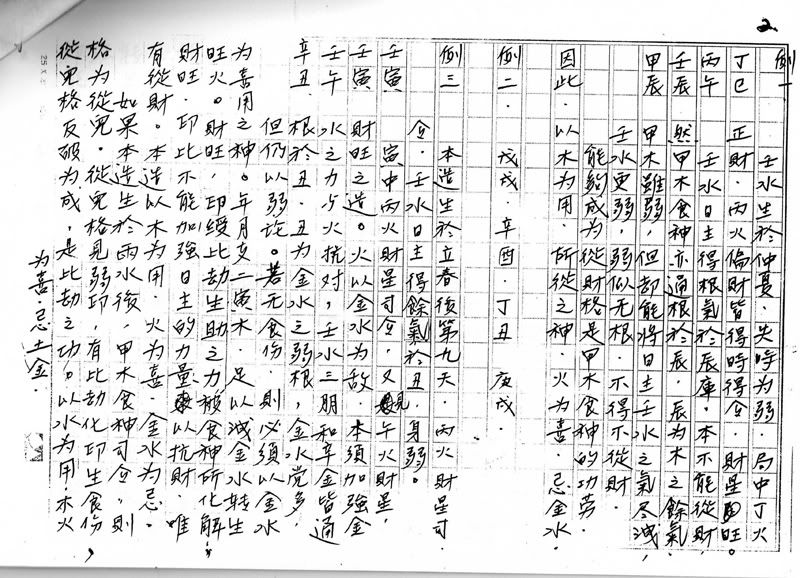 2
例一
丁巳 正 壬水生於仲夏．失時为弱．局中丁火
丙午 財．丙火偏財皆得時得令．財星旺。
壬辰 壬水日主得根氣於辰庫．本不能從財
甲辰 然甲木食神亦通根於辰．辰为木之餘氣
甲木雖弱，但却能將日主壬水之氣尽洩，
壬水更弱，弱似无根．不得不從財．
能夠成为從財格是甲木食神的功劳
因此．以木为用．所從之神．火为喜．忌金水．
例二．戊戌．辛酉．丁丑．庚戌．
例三 本造生於立春後第九天．丙火財星司
令．壬水日主得餘氣於丑．身弱。
壬寅 寅中丙火財星司令．又見午火財星．
壬寅 財旺造。火以金水为敌．本須加強金
壬午 水之力．与火抗对，壬水三朋和辛金皆通
辛丑．根於丑．丑为金水之弱根，金水党多，
但仍以弱论。若无食伤．則必須以金水
为喜用之神。年月支二寅木．足以減金水轉生
旺火。財旺，印綬比劫生助之力被食神所化解．
財旺．印比不能加強日主的力量以抗財．唯
有從財。本造以木为用．火为喜．金水为忌．
如果本造生於雨水後，甲木食神司令，則
格为從兒．從兒格見弱印，有比劫化印生食伤，
從兒格反破为成，是此劫之功。以水为用．木火
为喜．忌土金．